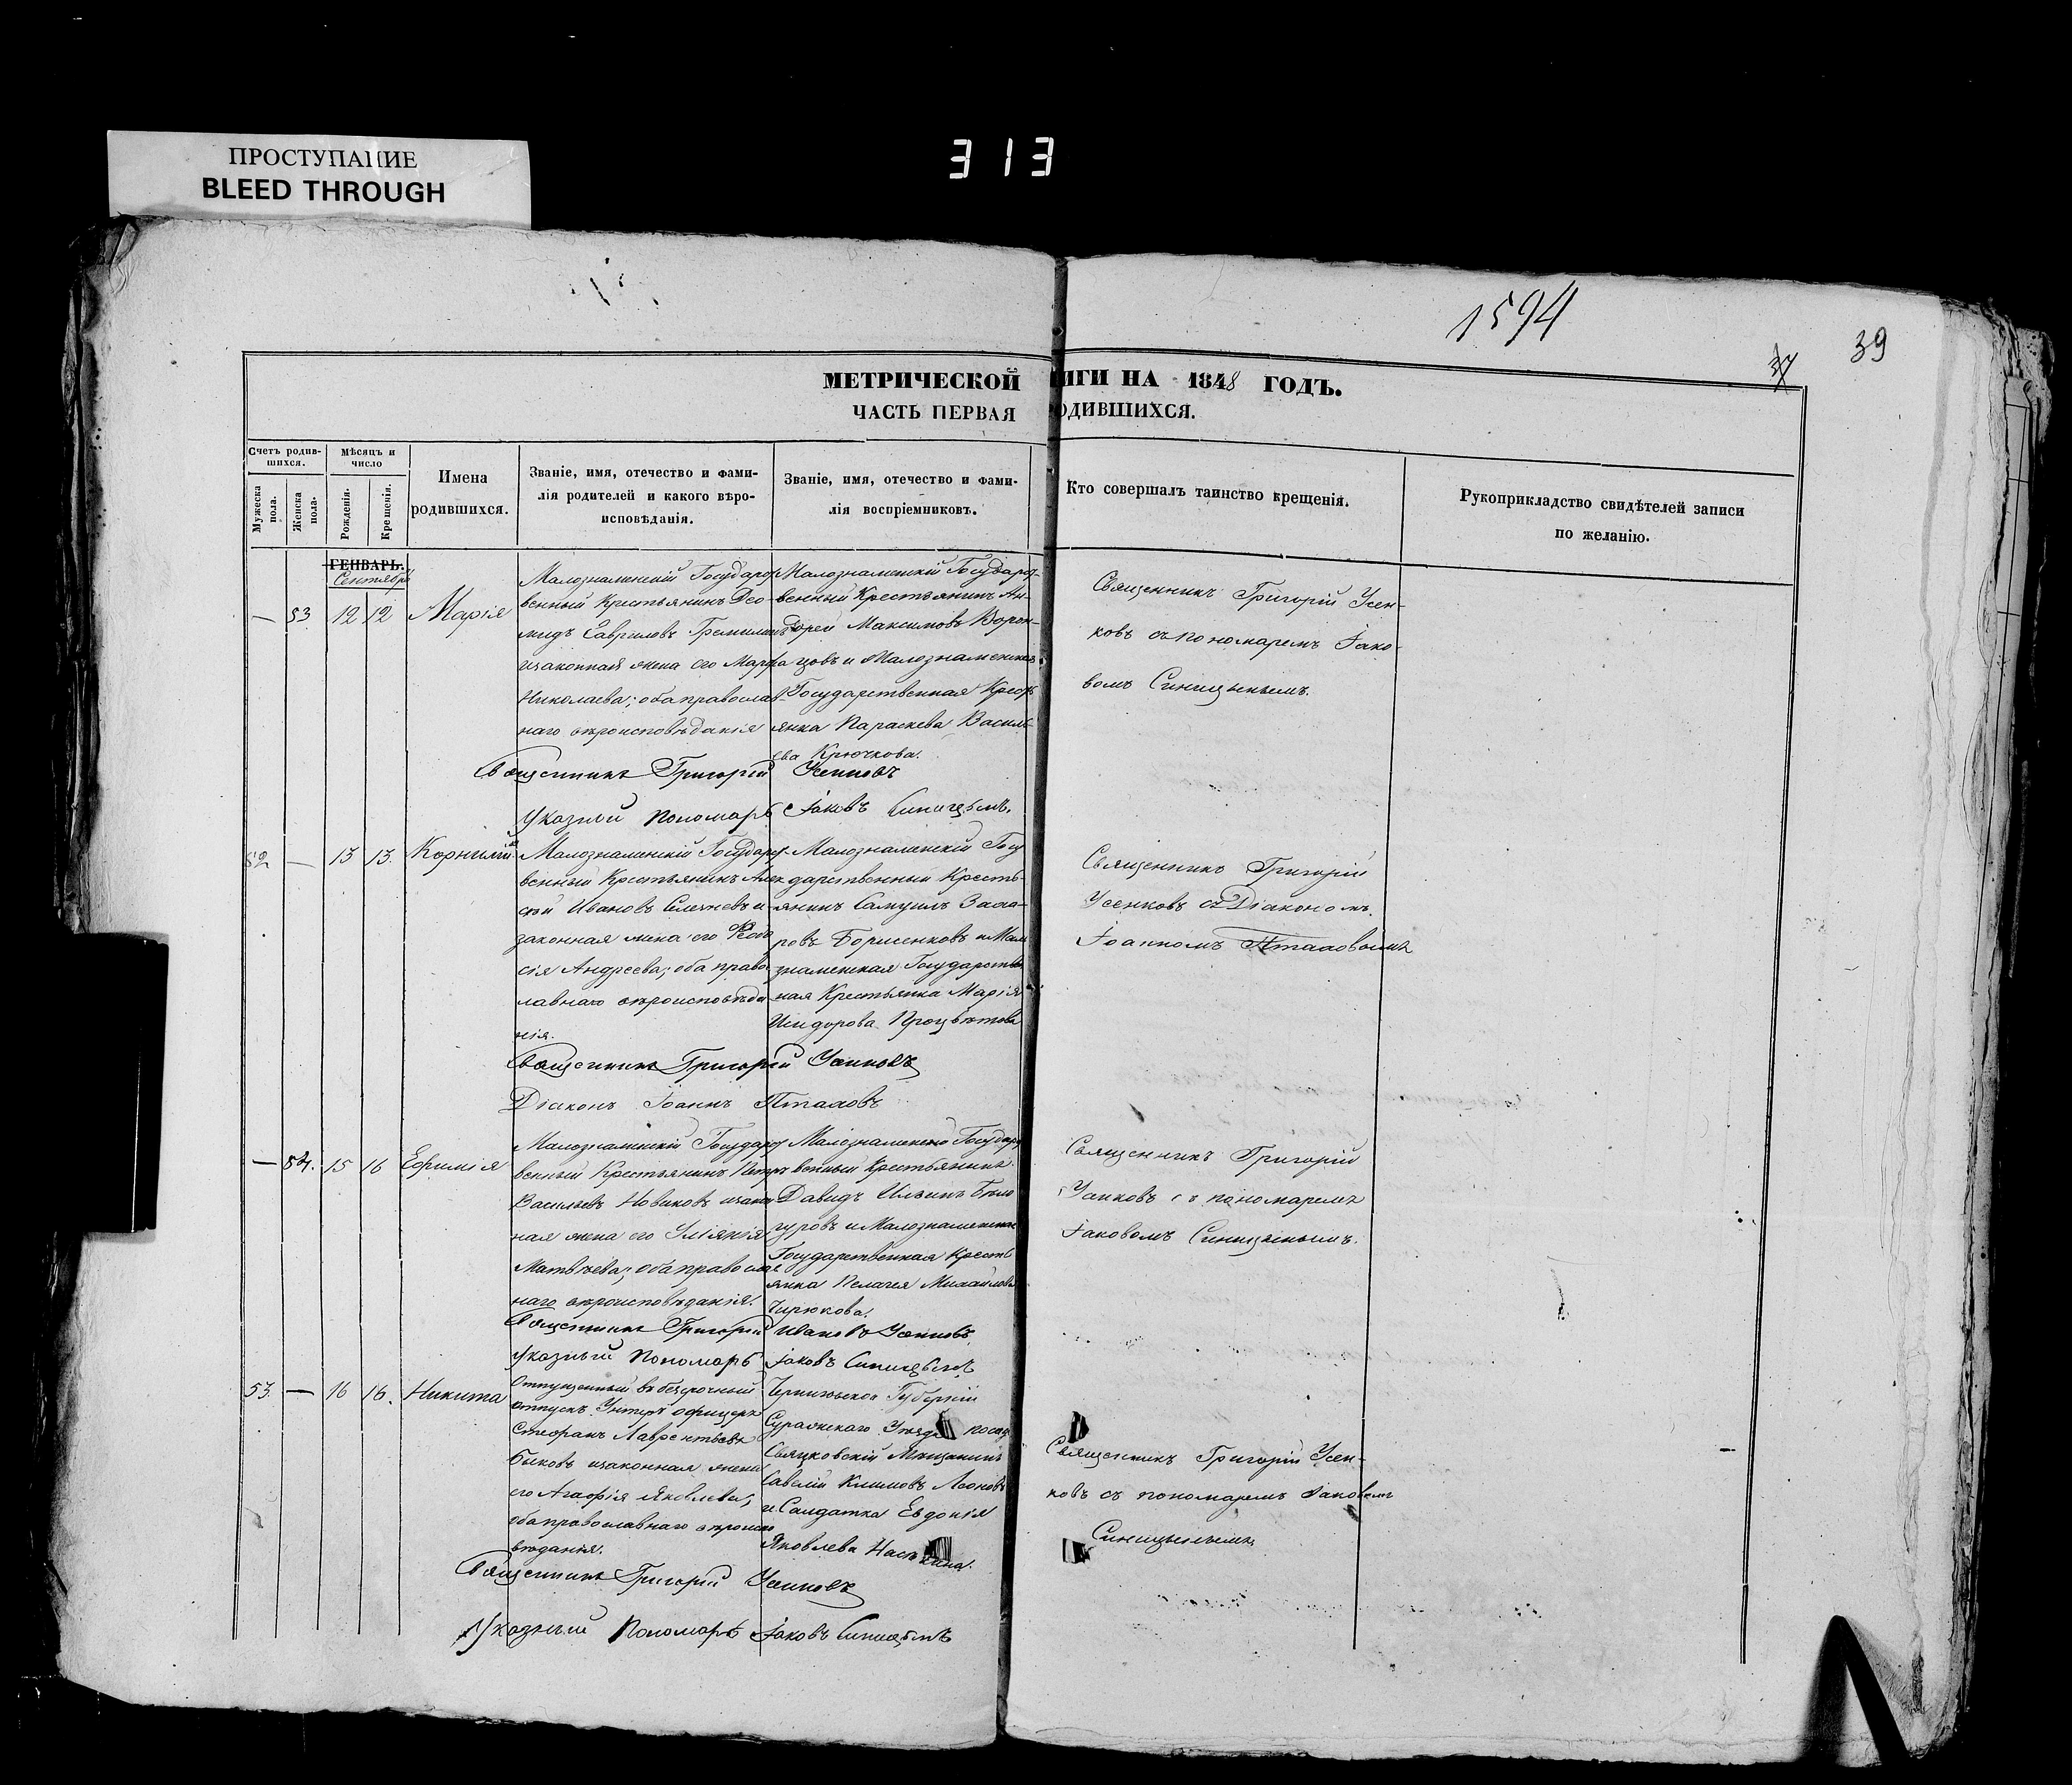 ПРОСТУПАНИЕ
BLEED THROUGH
313
1594
37
39
МЕТРИЧЕСКОЙ ИГИ НА 1848 ГОДЪ.
ЧАСТЬ ПЕРВАЯ ОДИВШИХСЯ.
Счетъ родив-
шихся.
Мужеска
пола.
Женска
пола.
Мѣсяцъ и
число
Рожденія.
Крещенія.
Имена
родившихся.
Званіе, имя, отечество и фами-
лія родителей и какого вѣро-
исповѣданія.
Званіе, имя, отечество и фами-
лія воспріемниковъ.
Кто совершалъ таинство крещенія.
Рукоприкладство свидѣтелей записи
по желанію.
ГЕНВАРЬ.
Сентябрь
— 53 12 12 Марія
Малознаменскій Государст
венный Крестьянинъ Део-
мидъ Гавриловъ
изаконная жена его Марфа
Николаева; оба православ-
наго вѣроисповѣданія
Малознаменскій Государст-
венный Крестьянинъ Ан-
дреи Максимовъ Ворон-
цовъ и Малознаменская
Государственная Крест
янка Параскева Василь-
ева Крючкова.
Священникъ Григорій Усен-
ковъ съ пономаремъ Іако-
вомъ Синицынымъ.
Священникъ Григорій Усенковъ
Указный Пономарь Іаковъ Синицынъ.
52 — 13 13. Корнилій
Малознаменскій Государст-
венный Крестьянинъ Алек
сѣй Ивановъ Слезневъ и
законная жена его Ѳеодо
сія Андреева; оба правос
лавнаго вѣроисповѣда
нія.
Малознаменскій Госу
дарственный Кресть-
янинъ Самуилъ Заха-
ровъ Борисенковъ и Мало
знаменская Государствен
ная Крестьянка Марія
Исидорова Процвѣтова
Священникъ Григорій
Усенковъ съ Діакономъ
Іоанномъ Пталовымъ
Священникъ Григорій Усенковъ
Діаконъ Іоаннъ Пталовъ
— 54. 15 16 Ефимія
Малознаменскій Государст
венный Крестьянинъ Петръ
Васильевъ Новиковъ изакон
ная жена его Уліянія
Матвѣева; оба православ
наго вѣроисповѣданія.
Малознаменскій Государст
венный Крестьянинъ
Давидъ Ильинъ Бѣло
гуровъ и Малознаменская
Государственная Кресть
янка Пелагея Михайлова
Чирюкова.
Священникъ Григорій
Усенковъ съ пономаремъ
Іаковомъ Синицынымъ.
Священникъ Григорій Ивановъ Усенковъ
Указный Пономарь Іаковъ Синицынъ
53. — 16 16. Никита
Отпущенный въ безсрочный
отпускъ Унтеръ офицеръ
Стефанъ Лаврентьевъ
Быковъ изаконная жена
его Агафія Яковлева,
оба православнаго вѣроиспо
вѣданія.
Черниговской Губерніи
Суражскаго Уѣзда посада
Свяцковскій Мѣщанинъ
Савелій Климовъ Леоновъ
и Салдатка Евдокія
Яковлева
Священникъ Григорій Усен-
ковъ съ пономаремъ Іаковомъ
Синицынымъ.
Священникъ Григорій Усенковъ
Указный Пономарь Іаковъ Синицынъ